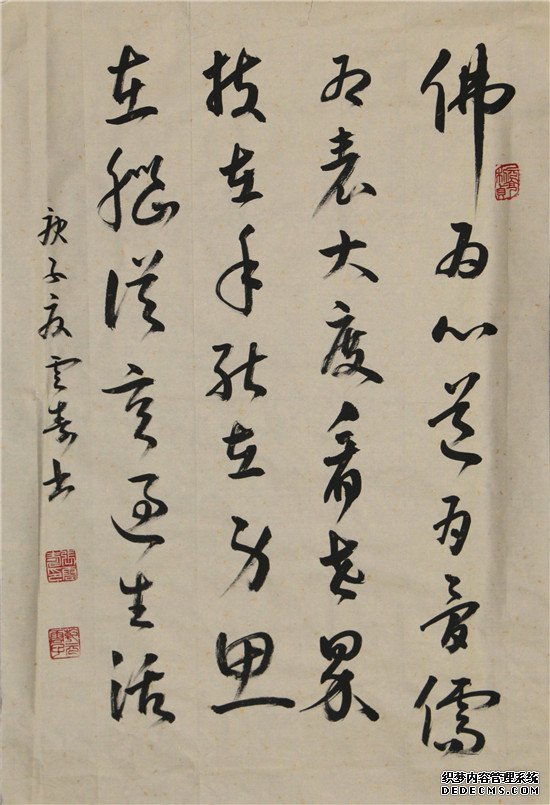 佛为心道为骨儒
为表大度看世界
技在手能在身思
在脑从容过生活
庚子夏雲寿书
织梦内容管理系统
DEDECMS.COM